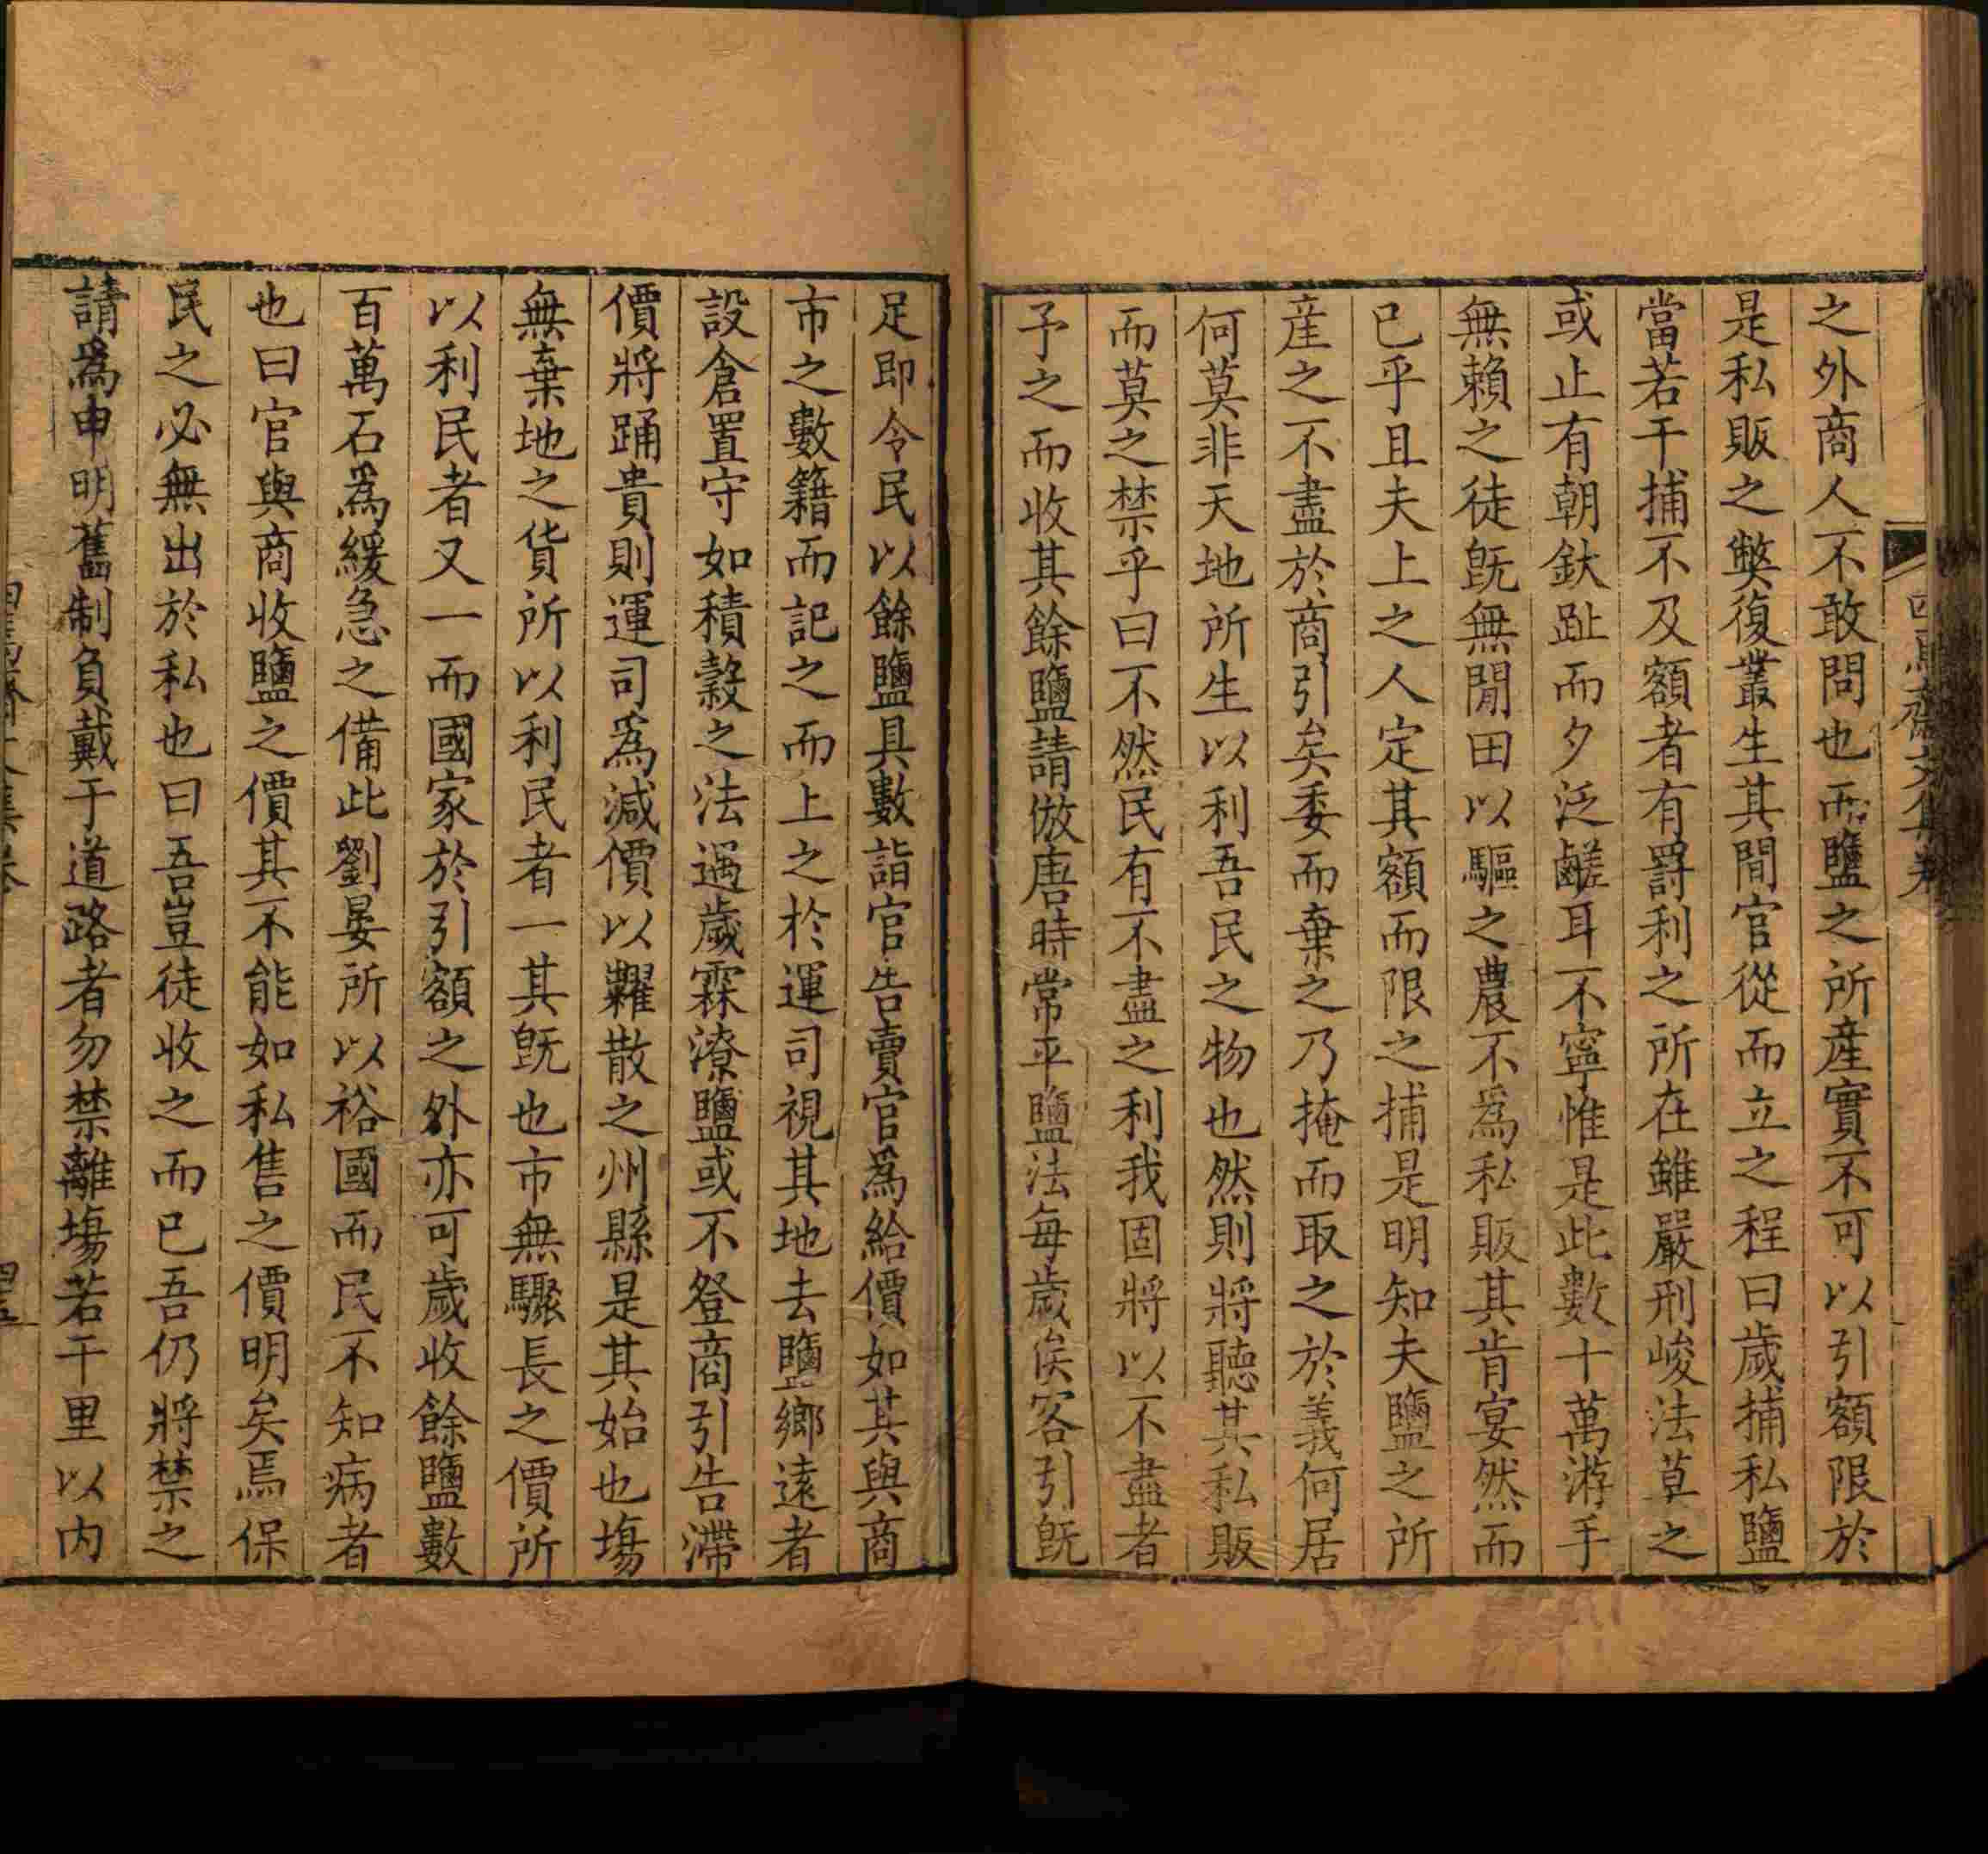 之外商人不敢問也而鹽之所産實不可以引額限於
是私販之獘復叢生其間官從而立之程曰歲捕私鹽
當若干捕不及額者有罸利之所在雖嚴刑峻法草之
或止有朝釱趾而夕泛鹺耳不寧惟是此數十萬游手
無賴之徒旣無閒田以驅之農不爲私販其肯宴然而
已乎且夫上之人定其額而限之捕是明知夫鹽之所
産之不盡於商引矣委而棄之乃掩而取之於義何居
何莫非天地所生以利吾民之物也然則將聽其私販
而莫之禁乎曰不然民有不盡之利我固將以不盡者
予之而收其餘鹽請倣唐時常平鹽法每歲俟客引旣
足即令民以餘鹽具數詣官告賣官爲給價如其與商
市之數籍而記之而上之於運司視其地去鹽鄉遠者
設倉置守如積穀之法遇歲霖潦鹽或不登商引告滯
價將踊貴則運司爲減價以糶散之州縣是其始也塲
無棄地之貨所以利民者一其旣也市無驟長之價所
以利民者又一而國家於引額之外亦可歲收餘鹽數
百萬石爲緩急之備此劉晏所以裕國而民不知病者
也曰官與商收鹽之價其不能如私售之價明矣焉保
民之必無出於私也曰吾豈徒收之而已吾仍將禁之
請爲申明舊制負戴于道路者勿禁離塲若干里以内